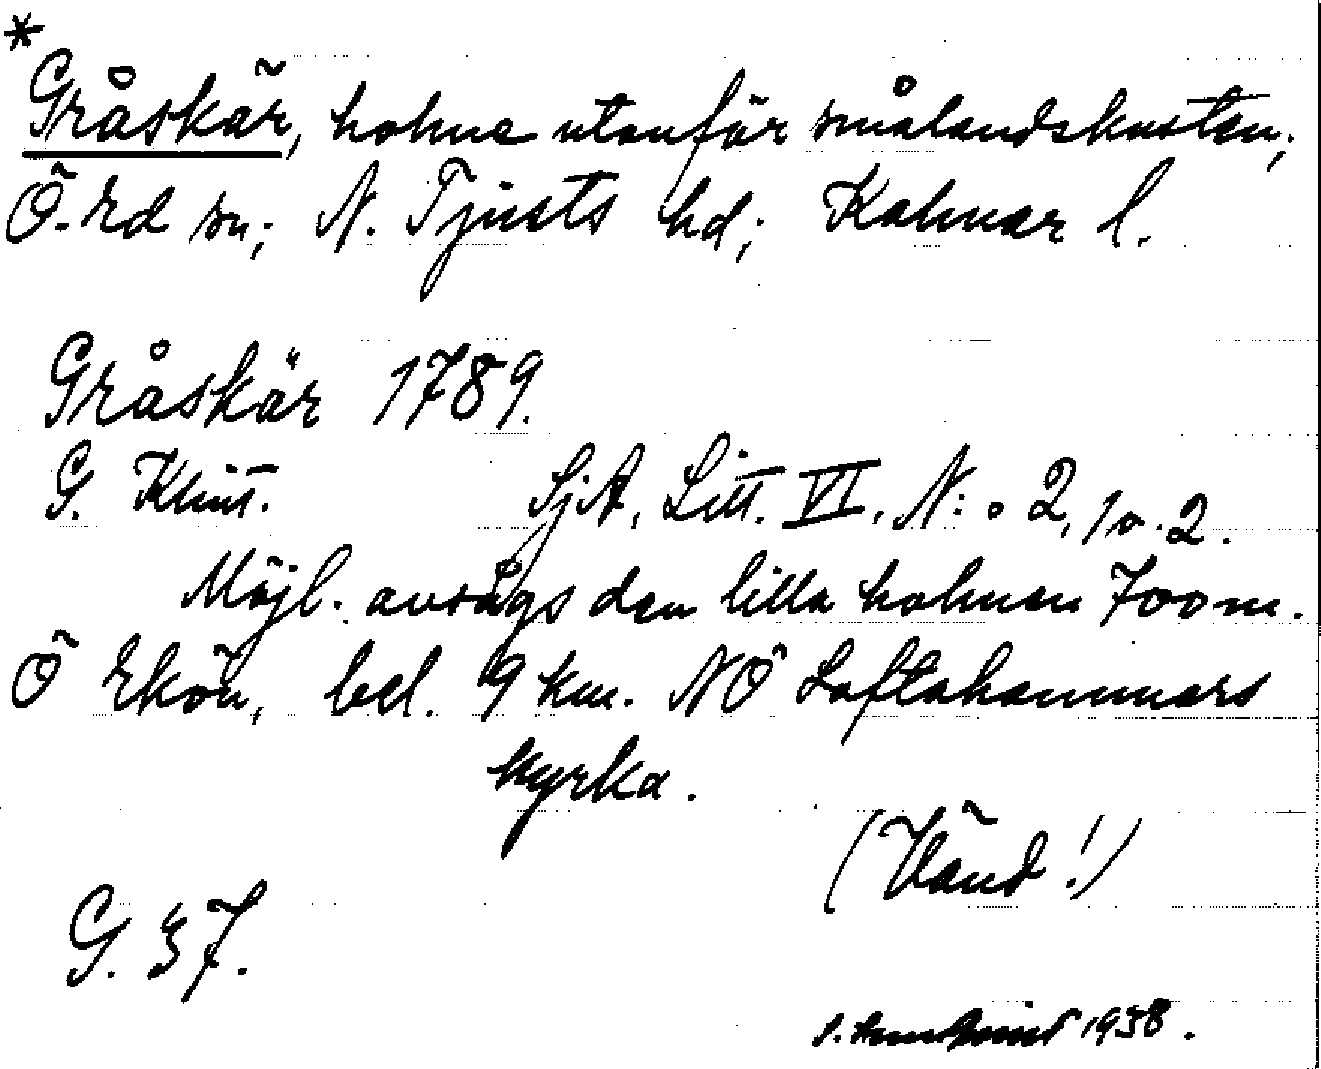 *
Gråskär, holme utanför smålandskusten;
Ö. Ed sn; N. Tjusts hd; Kalmar l.
Gråskär 1789.
G. Klint. SjA, Litt. VI, N:o 2, 1 o. 2.
Möjl. avsågs den lilla holmen 700 m.
Ö Ekön, bel. 9 km. NÖ Loftahammars
kyrka.
(Vänd!)
G. 37.
1938.